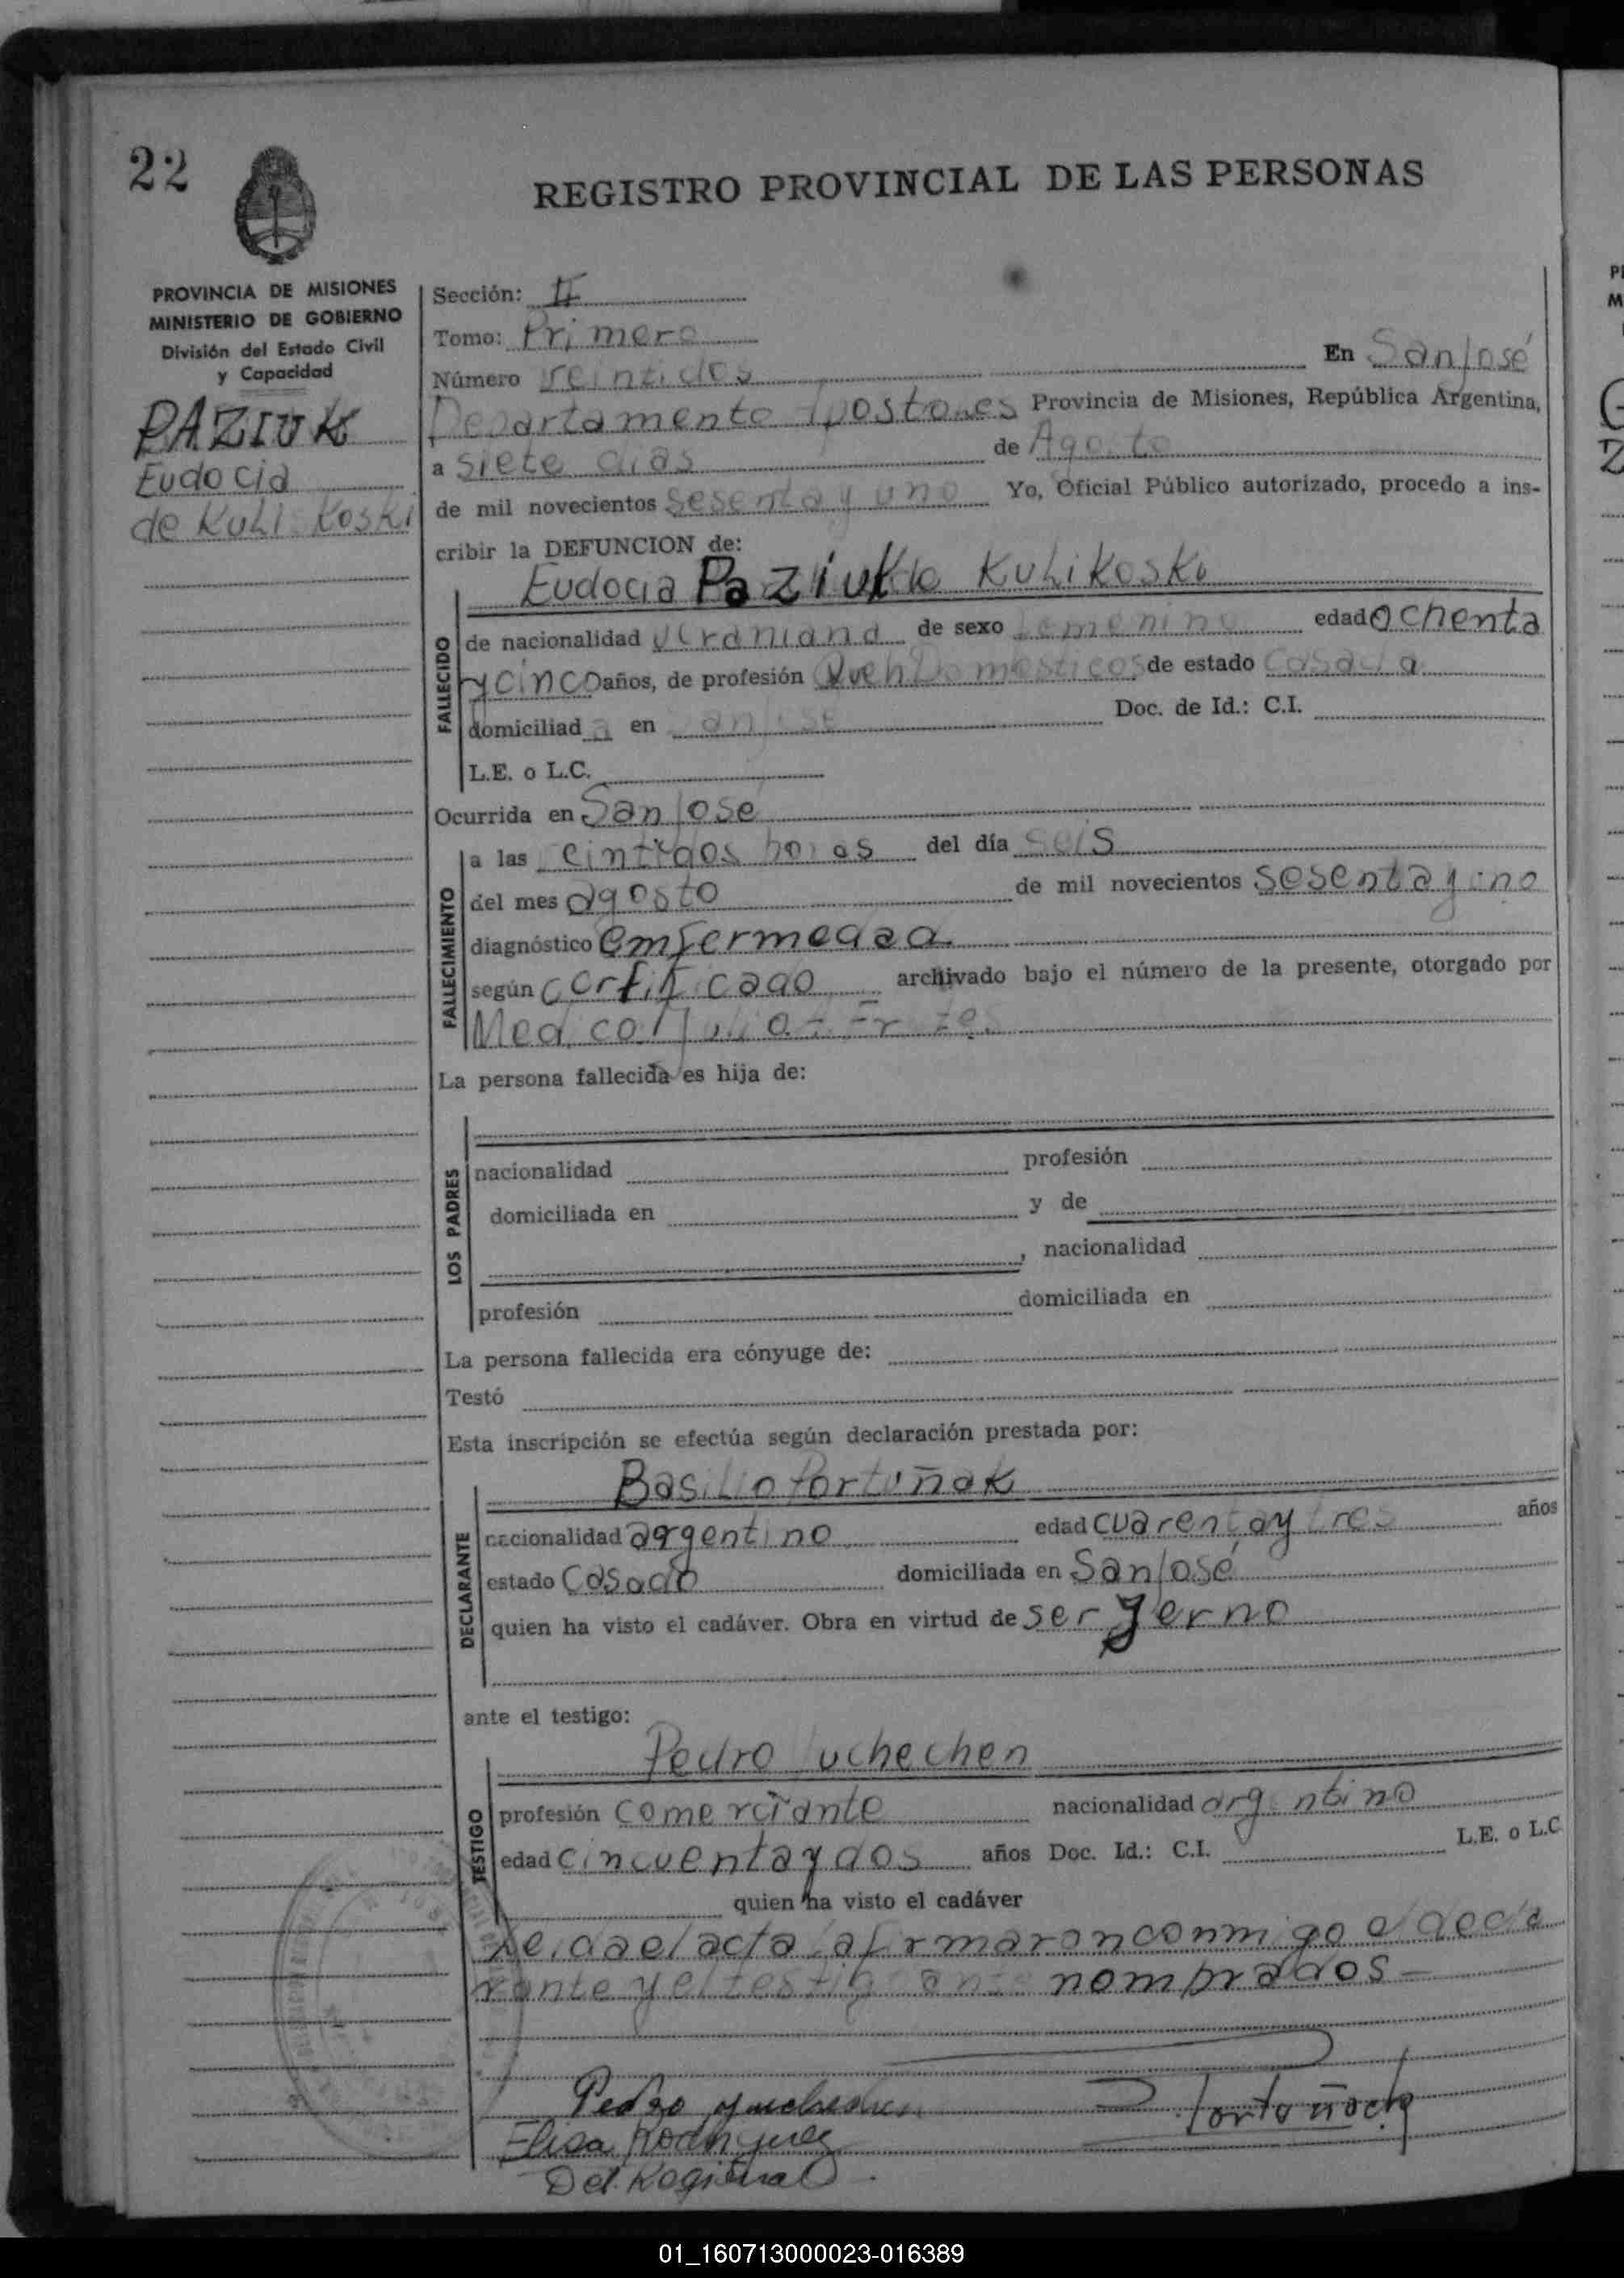 22
REGISTRO PROVINCIAL DE LAS PERSONAS
PROVINCIA DE MISIONES
MINISTERIO DE GOBIERNO
División del Estado Civil
y Capacidad
PAZIUK
Eudocia
de Kulikoski
Sección: II
Tomo: Primero
Número veintidos En San José
Departamento Apostoles Provincia de Misiones, República Argentina,
a siete dias de Agosto
de mil novecientos sesenta y uno Yo, Oficial Público autorizado, procedo a ins-
cribir la DEFUNCION de:
Eudocia Paziuk de Kulikoski
FALLECIDO
de nacionalidad ucraniana de sexo femenino edad ochenta
y cinco años, de profesión Domesticos de estado casada
domiciliad a en San Jose Doc. de Id.: C.I.
L.E. o L.C.
Ocurrida en San Jose
FALLECIMIENTO
a las veintidos horas del día seis
del mes agosto de mil novecientos sesenta y uno
diagnóstico enfermedad
según certificado archivado bajo el número de la presente, otorgado por
Medico Julio
La persona fallecida es hija de:
LOS PADRES
nacionalidad profesión
domiciliada en y de
, nacionalidad
profesión domiciliada en
La persona fallecida era cónyuge de:
Testó
Esta inscripción se efectúa según declaración prestada por:
Basilio Portuñak
DECLARANTE
nacionalidad argentino edad cuarenta y tres años
estado Casado domiciliada en San José
quien ha visto el cadáver. Obra en virtud de ser Yerno
ante el testigo:
Pedro Yuchechen
TESTIGO
profesión comerciante nacionalidad argentino
edad cincuenta y dos años Doc. Id.: C.I. L.E. o L.C.
quien ha visto el cadáver
Leida el acta la firmaron conmigo el decla
rante y el testigo nombrados—
Pedro Yuchechen
Elisa Rodriguez
Del. Regional
01_160713000023-016389